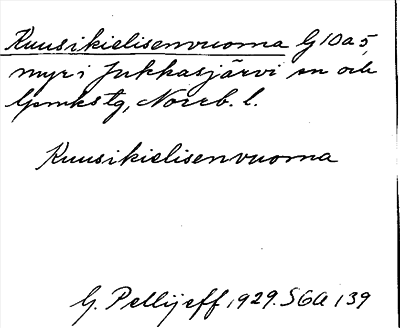 Kuusikielisenvuoma G10a5,
myr i Jukkasjärvi sn och
lpmkstg, Norrb. l.
Kuusikielisenvuoma
G. Pellijeff 1929. SGA 139